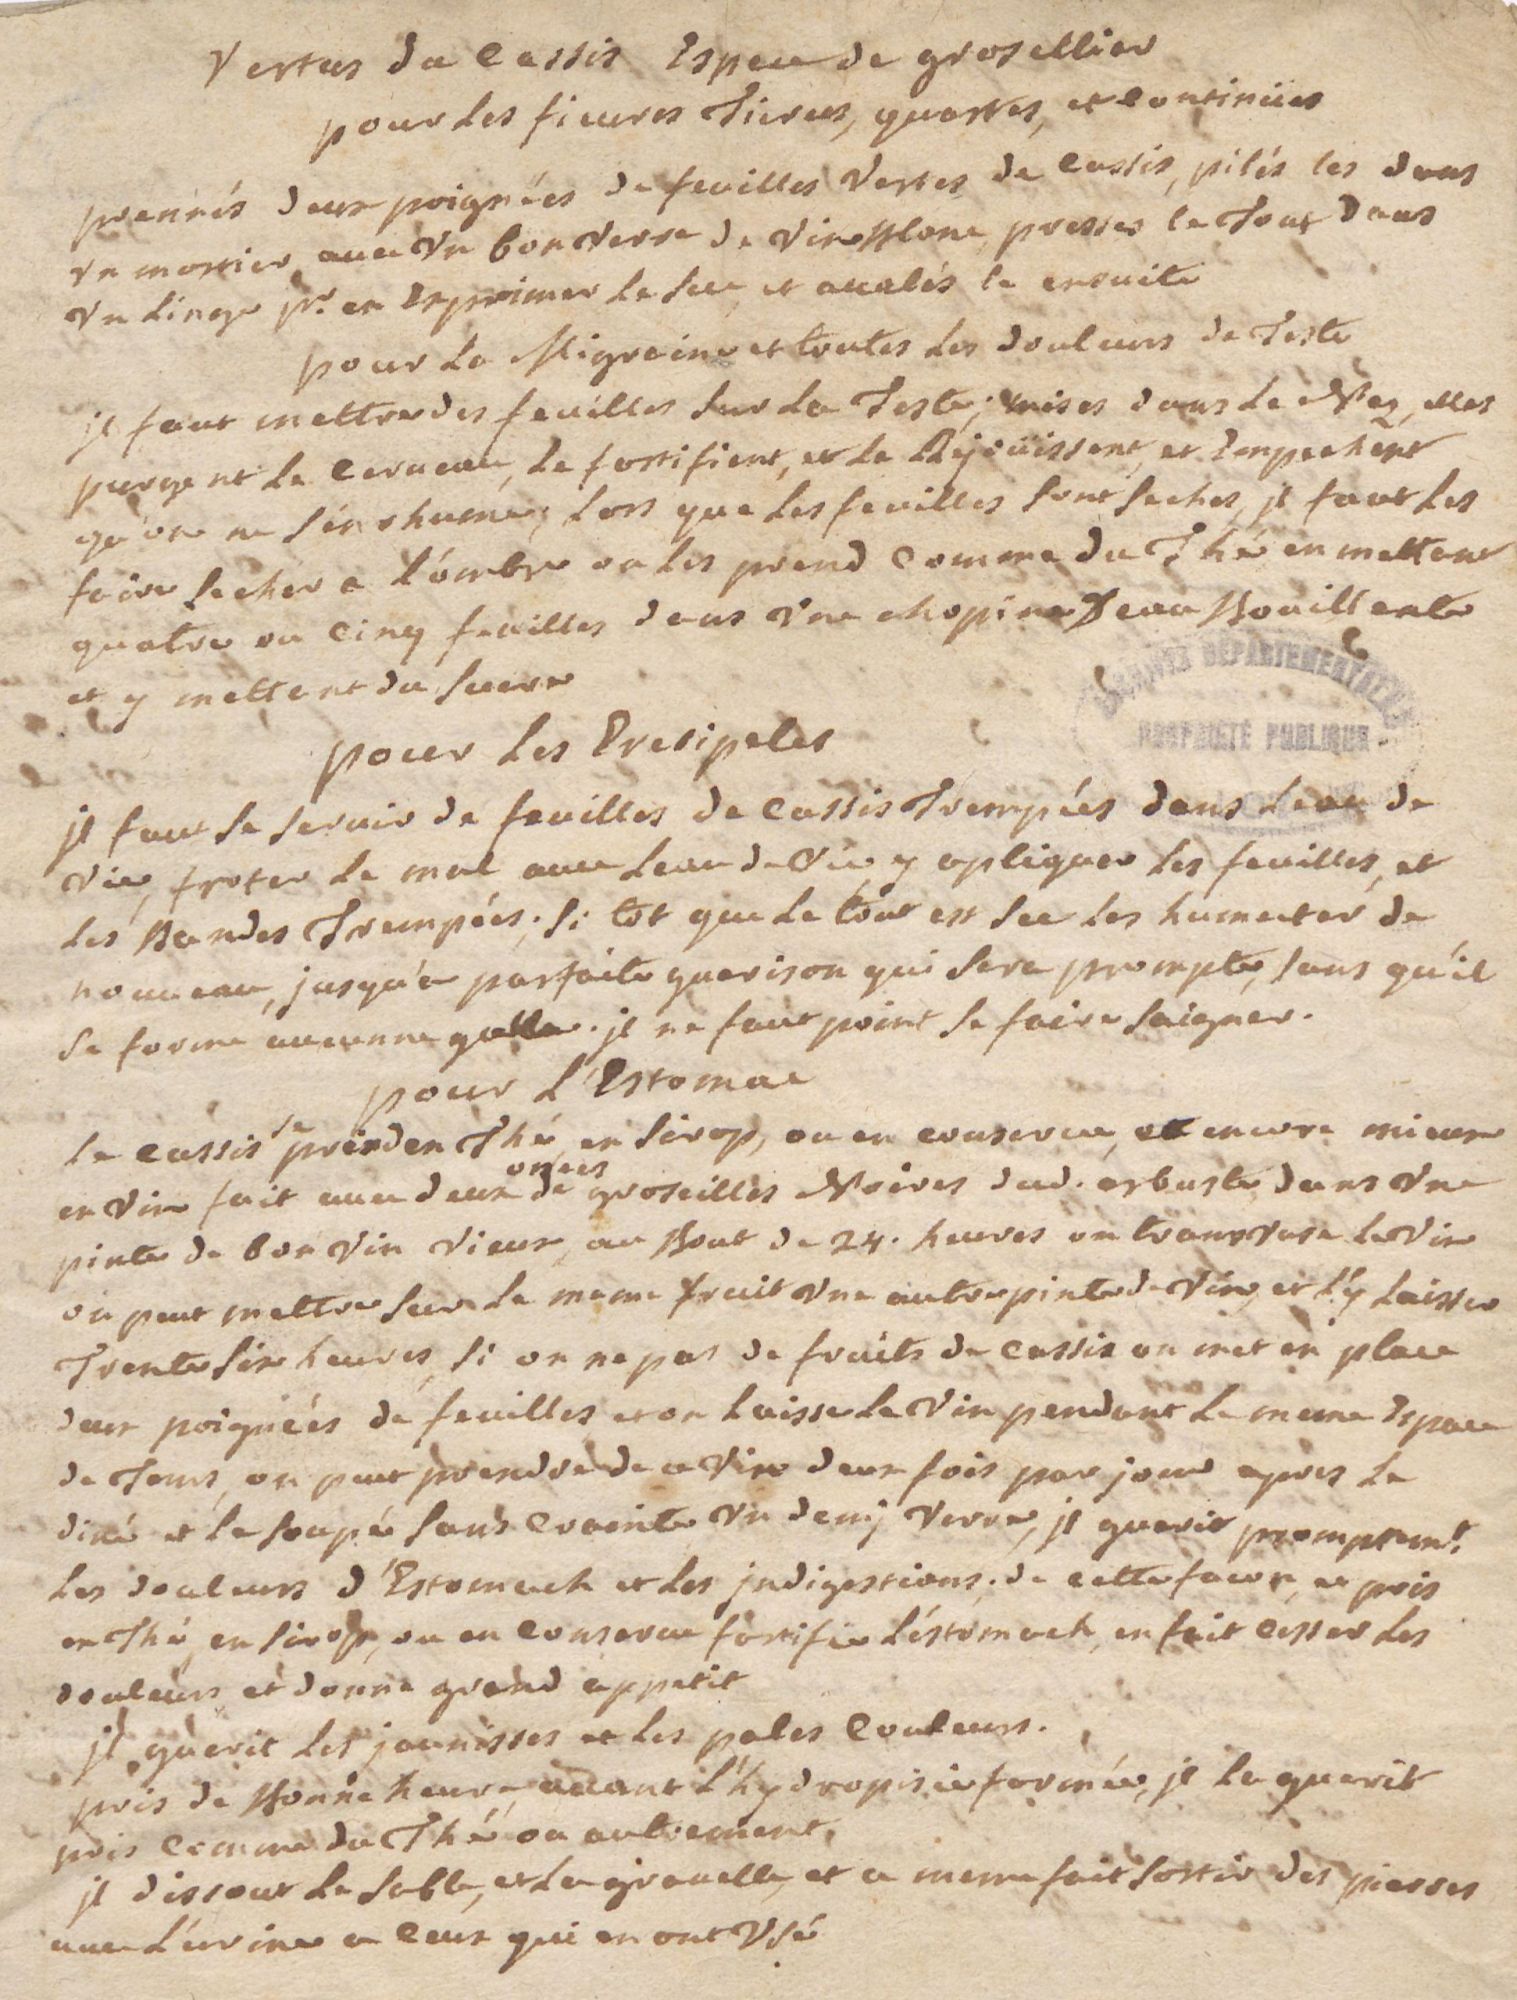 Vertus du Cassis Espece de grosellier
pour les fievres Tierces, quartes, et continües
prennés deux poignées de feuilles Vertes de Cassis, pilés les dans
Vn mortier avec Vn bon Verre de Vin Blanc, pressés le Tout dans
Vn Linge pr. en Exprimer le suc et avalés le ensuite
pour La Migraine et toutes Les douleurs de Teste
jl faut mettre des feuilles sur La Teste; mises dans Le Nez, elles
purgent Le Cerveau, Le fortifient, et Le Réjoüissent, et Empechent
qu'on ne s'enrhume, Lors que Les feuilles sont seches, jl faut Les
faire secher a L'ombre on Les prend Comme du Thé en mettant
quatre ou Cinq feuilles dans Vne chopine d'eau Bouillante
et y mettent du sucre
ARCHIVES DÉPARTEMENTALES
PROPRIÉTÉ PUBLIQUE
pour Les Eresipeles
jl faut se servir de feuilles de Cassis Trempées dans Leau de
Vie, froter Le mal avec Leau de Vie, y apliquer Les feuilles, et
Les Bandes Trempées; si tôt que Le tout est sec Les humecter de
nouveau, jusqu'a parfaite guerison qui sera prompte, sans qu'il
se forme aucunne galle. jl ne faut point se faire saigner.
pour L'Estomac
Le Cassis se prend en Thé, en sirop, ou en conserve, et encore mieux
en Vin fait avec deux onces de groseilles Noires dud. arbuste dans Vne
pinte de bon Vin Vieux, au Bout de 24. heures on transvase Le Vin
on peut mettre sur Le meme fruit Vne autre pinte de Vin, et L'y Laisser
Trente six heures, si on na pas de fruits de Cassis on met en place
deux poignées de feuilles et on Laisse Le Vin pendant Le meme Espace
de Tems, on peut prendre de ce Vin deux fois par jour apres Le
diné et Le soupé sans Crainte Vn demj Verre, jl guerit promptemt.
Les douleurs d'Estomach et Les jndigestions; de cette facon, et pris
en Thé, en sirop, ou en Conserve fortifie L'estomach, en fait Cesser Les
douleurs et donne grand appetit
jl guerit Les jaunisses et Les pales Couleurs.
pris de Bonne heure, avant L'hydropisie formée, jl La guerit
pris Comme du Thé ou autrement,
jl dissout Le sable, et La gravelle, et a meme fait sortir des pierres
avec L'urine a Ceux qui en ont Vsé